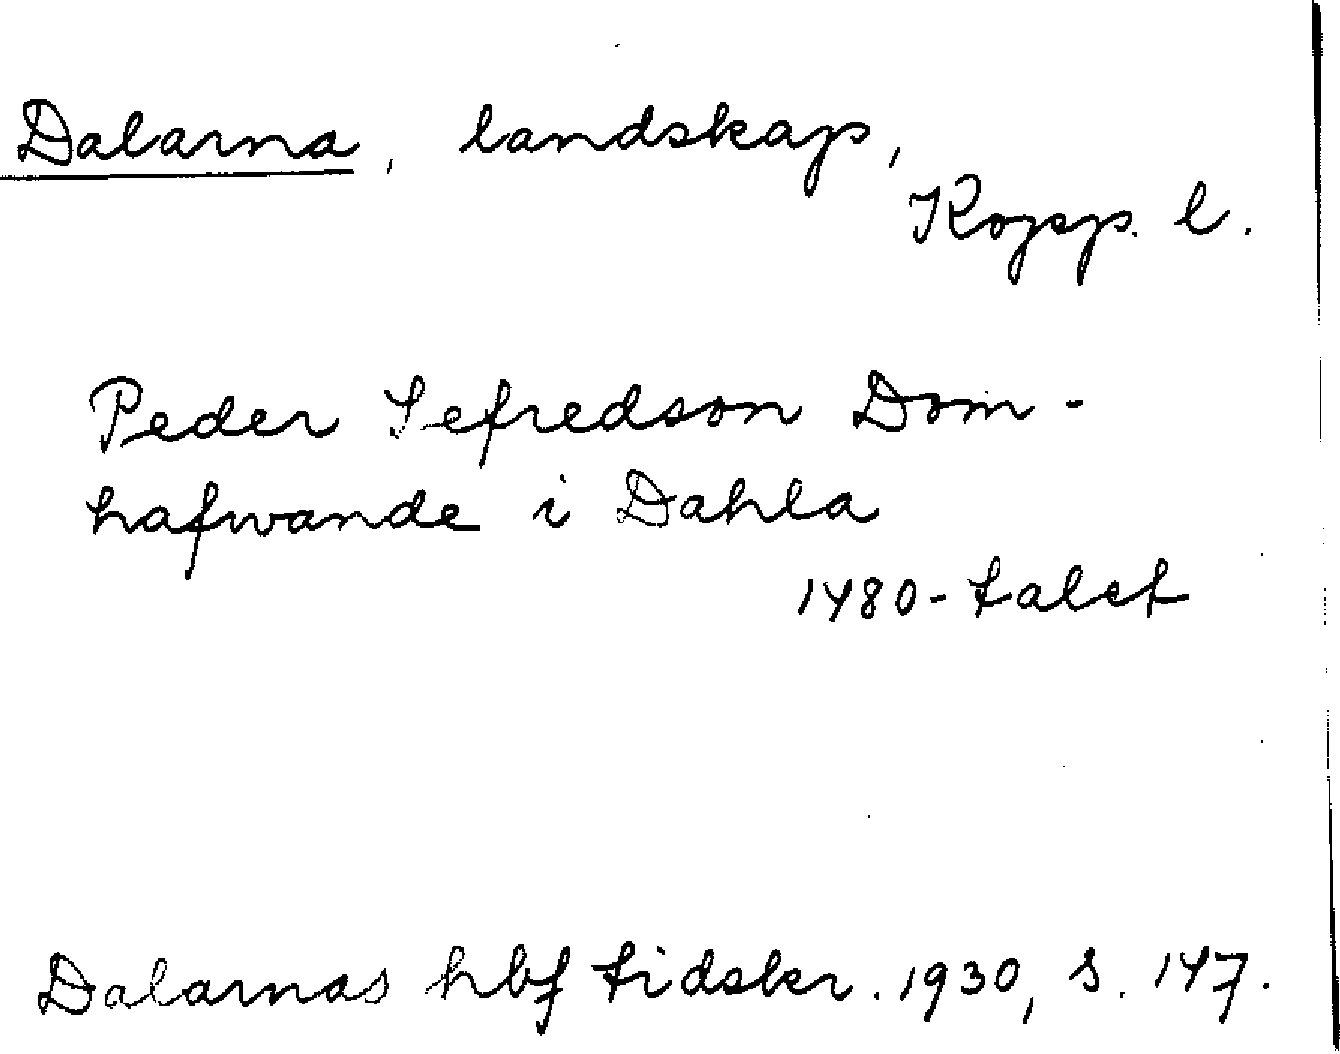 Dalarna, landskap,
Kopp. l.
Peder Sefredson Dom-
hafwande i Dahla
1480-talet
Dalarnas hbf tidskr. 1930, s. 147.